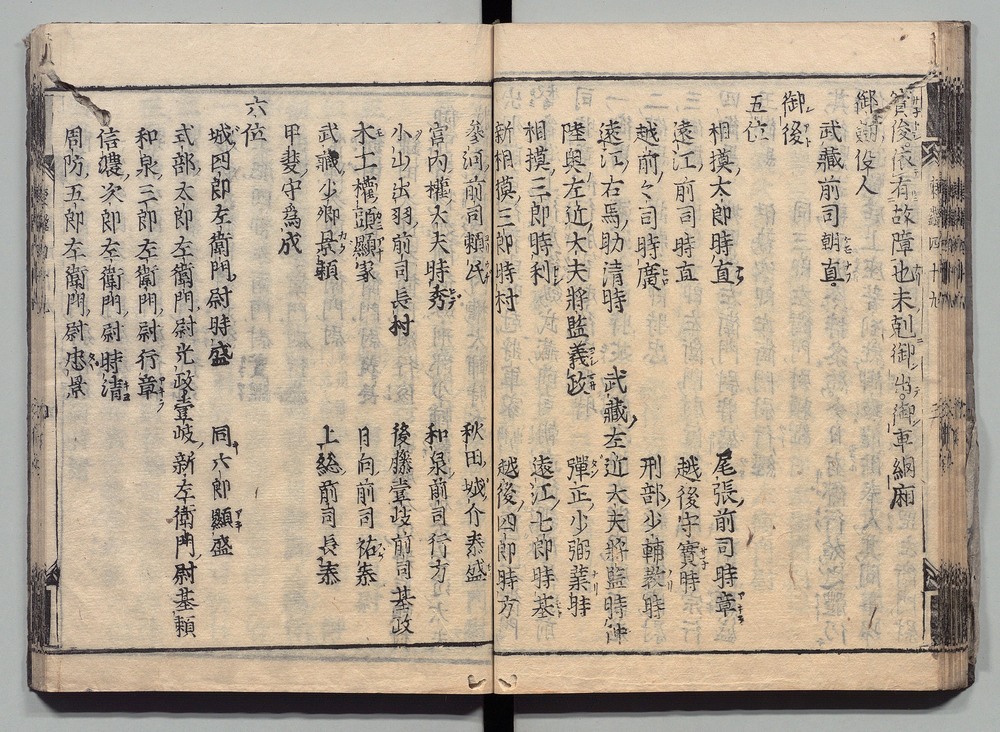 俊儀有故障也未剋御出御車網廂
御劔役人
武藏前司朝直
御後
五位
相摸太郎時直 尾張前司時章
遠江前司時直 越後守實時
越前々司時廣 刑部少輔教時
遠江右馬助清時 武藏左近大夫將監時仲
陸奥左近大夫將監義政 彈正少弼業時
相摸三郎時利 遠江七郎時基
新相摸三郎時村 越後四郎時方
參河前司頼氏 秋田城介泰盛
宮内權大夫時秀 和泉前司行方
小山出羽前司長村 後藤壹岐前司基政
木工權頭顯家 日向前司祐泰
武藏少卿景頼 上総前司長泰
甲斐守為成
六位
城四郎左衛門尉時盛 同六郎顯盛
式部太郎左衛門尉光政 壹岐新左衛門尉基頼
和泉三郎左衛門尉行章
信濃次郎左衛門尉時清
周防五郎左衛門尉忠景